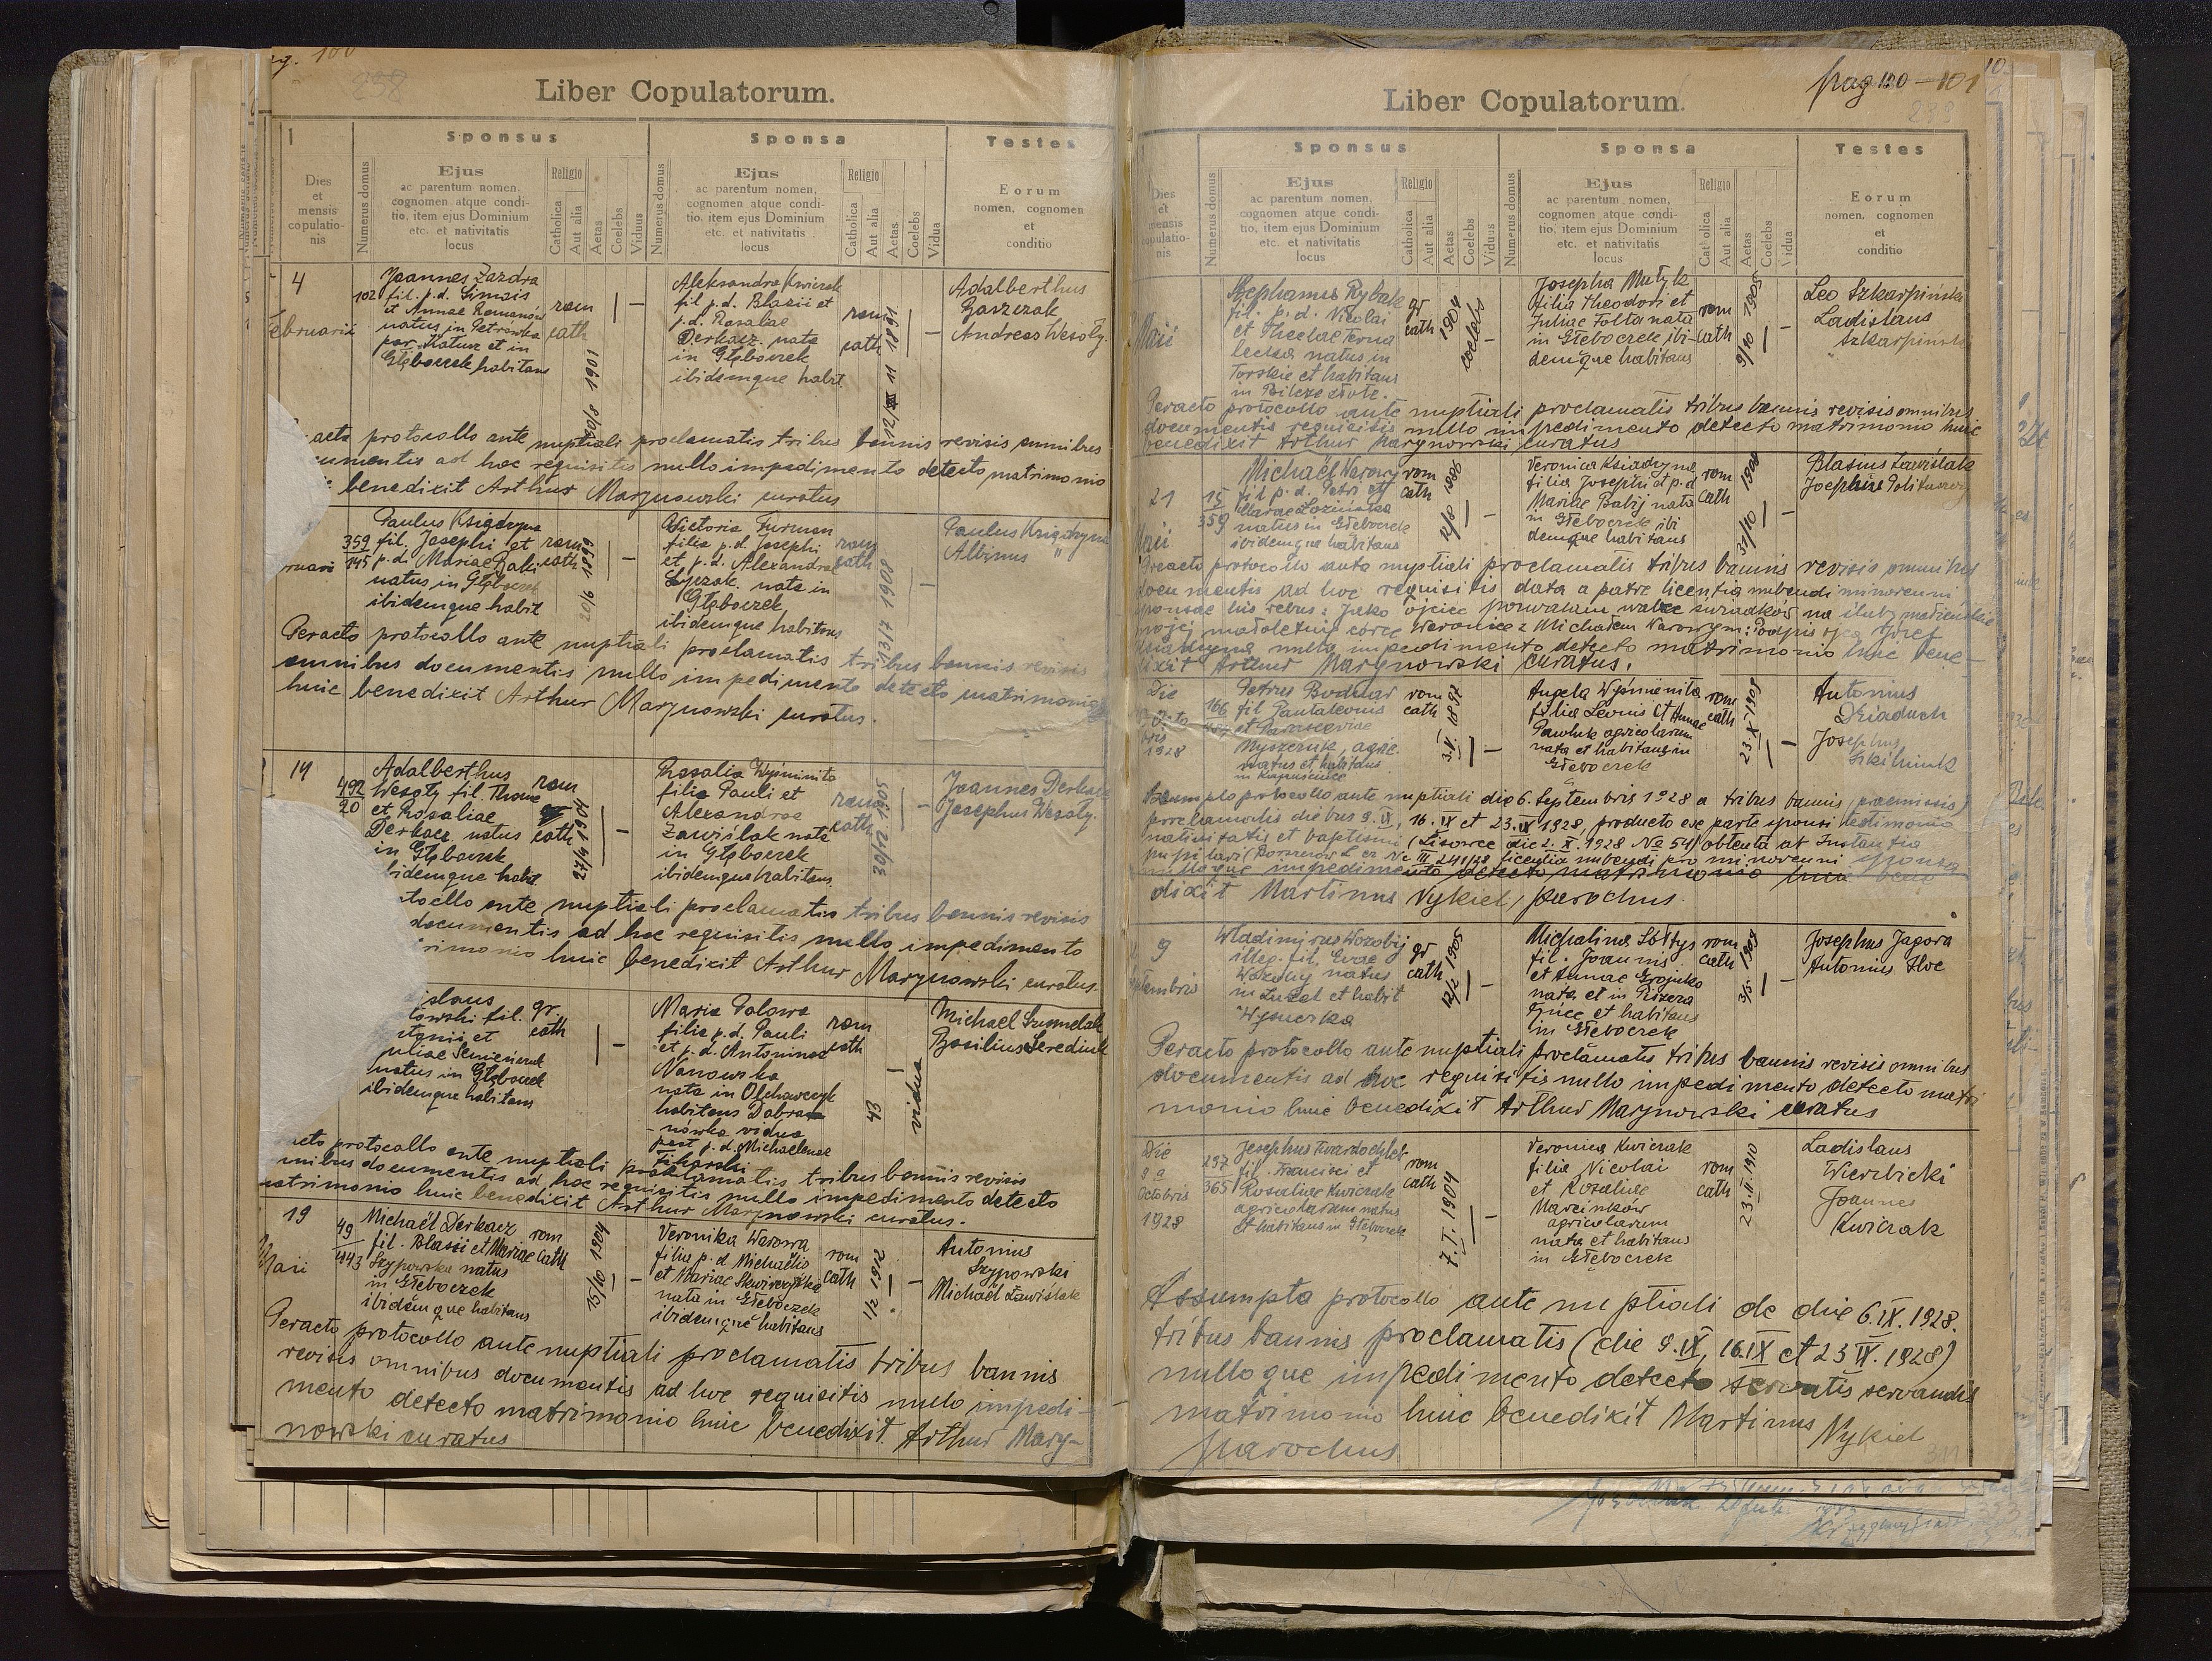 Liber Copulatorum.
1
Dies
et
mensis
copulatio-
nis
Numerus domus
Sponsus
Ejus
ac parentum nomen,
cognomen atque condi-
tio, item ejus Dominium
etc. et nativitatis
locus
Religio
Catholica
Aut alia
Aetas
Coelebs
Viduus
Numerus domus
Sponsa
Ejus
ac parentum nomen,
cognomen atque condi-
tio, item ejus Dominium
etc. et nativitatis
locus
Religio
Catholica
Aut alia
Aetas
Coelebs
Vidua
Testes
Eorum
nomen, cognomen
et
conditio
4
ebruarii
102
Joannes Zazdra
fil. p.d. Simois
et Annae Romanów
natus in Petrowka
par. Kature et in
Głęboczek habitans
rom
cath
30/8 1901
Aleksandra Kwiczak
fil p.d. Blasii et
p.d. Rosaliae
Derkacz nata
in Głęboczek
ibidemque habit.
rom
cath
11 1891
Adalberthus
Barzczak
Andreas Wesoły.
acta protocollo ante nuptiali proclamatis tribus bannis revisis omnibus
cumentis ad hoc requisitis nullo impedimento detecto matrimonio
benedixit Arthur Marynowski curatus
ruarii
359
145
Paulus Książdzyna
fil. Josephi et
p.d. Mariae Babij
natus in Głęboczek
ibidemque habit
rom
cath
20/6 1899
Victoria Furman
filia p.d. Josephi
et p.d. Alexandrae
Łyczak nata in
Głęboczek
ibidemque habitans
rom
cath
13/7 1908
Paulus Książdzyna
Albinus "
Peracto protocollo ante nuptiali proclamatis tribus bannis revisis
omnibus documentis nullo impedimento detecto matrimonio
huic benedixit Arthur Marynowski curatus.
14
492
20
Adalberthus
Wesoły fil. Thomae
et Rosaliae
Derkacz natus
in Głęboczek
ibidemque habit.
rom
cath
27/4 1904
Rosalia Wyśminita
filia Pauli et
Alexandrae
Zawiślak nata
in Głęboczek
ibidemque habitans.
rom
cath
30/12 1905
Joannes Derkacz
Josephus Wesoły.
tocollo ante nuptiali proclamatis tribus bannis revisis
documentis ad hoc requisitis nullo impedimento
rimonio huic benedixit Arthur Marynowski curatus.
islaus
towski fil.
ntonii et
uliae Semieniuk
natus in Głęboczek
ibidemque habitans
gr.
cath
Maria Polowa
filia p.d. Pauli
et p.d. Antoninae
Nanowska
nata in Olchowczyk
habitans Dobra
- nówka vidua
post p.d. Michaelem
rom
cath
43
vidua
Michael Szumelak
Basilius Serediuk
acto protocollo ante nuptiali proclamatis tribus bannis revisis
mnibus documentis ad hoc requisitis nullo impedimento detecto
matrimonio huic benedixit Arthur Marynowski curatus.
19
Maii
49
443
Michaël Derkacz
fil. Blasii et Mariae
Szypowska natus
in Głęboczek
ibidemque habitans
rom
cath
15/10 1904
Veronika Warowa
filia p.d Michaëlis
et Mariae Skwirczyńska
nata in Głęboczek
ibidemque habitans
rom
cath
1/2 1912
Antonius
Szypowski
Michaël Zawiślak
Peracto protocollo ante nuptiali proclamatis tribus bannis
revisis omnibus documentis ad hoc requisitis nullo impedi-
mento detecto matrimonio huic benedixit Arthur Mary-
nowski curatus
pag 100 - 101
Liber Copulatorum.
Dies
et
mensis
copulatio-
nis
Numerus domus
Sponsus
Ejus
ac parentum nomen,
cognomen atque condi-
tio, item ejus Dominium
etc. et nativitatis
locus
Religio
Catholica
Aut alia
Aetas
Coelebs
Viduus
Numerus domus
Sponsa
Ejus
ac parentum nomen,
cognomen atque condi-
tio, item ejus Dominium
etc. et nativitatis
locus
Religio
Catholica
Aut alia
Aetas
Coelebs
Vidua
Testes
Eorum
nomen, cognomen
et
conditio
Maii
Stephanus Rybak
fil. p.d. Nicolai
et Theclae Terna
lecka natus in
Torskie et habitans
in Bilcze złote.
gr
cath
1904
coelebs
Josepha Mutyk
filia Theodori et
Juliae Folta nata
in Głeboczek ibi-
demque habitans
rom
cath
9/10 1905
Leo Szkarpiński
Ladislaus
Szkarpiński
Peracto protocollo ante nuptiali proclamatis tribus bannis revisis omnibus
documentis requisitis nullo impedimento detecto matrimonio huic
benedixit Arthur Marynowski curatus
21
Maii
15
359
Michaël Warowy
fil p.d. Petri et
Mariae Łozińska
natus in Głeboczek
ibidemque habitans
rom
cath
12/8 1986
Veronica Książdzyna
filia Josephi et p.d
Mariae Babij nata
in Głeboczek ibi
demque habitans
rom
cath
31/10 1908
Blasius Zawiślak
Peracto protocollo ante nuptiali proclamatis tribus bannis revisis omnibus
documentis ad hoc requisitis data a patre licentia nubendi minorenni
sponsae his rebus: Jako ojciec pozwalam wobec świadków na ślub małżeński
mojej małoletniej córce Weronice z Michałem Warowym: Podpis ojca Józef
Książdzyna nullo impedimento detecto matrimonio huic bene-
dixit Arthur Marynowski curatus.
Die
Octo
bris
1928
166
Petrus Bodnar
fil Pantaleonis
et Parasceviae
Myszczuk, agric.
natus et habitans
in Kapuścince
rom
cath
3.V. 1897
Angela Wyśminita
filia Leonis et Annae
Pawluk agricolarum
nata et habitans in
Głeboczek
rom
cath
23.X 1908
Antonius
Dziaduch
Josephus
Assumpto protocollo ante nuptiali die 6. Septembris 1928 a tribus bannis (praemissis)
proclamatis diebus 9.IX, 16.IX et 23.IX 1928, producto ex parte sponsi testimonio
nativitatis et baptismi (Lisowce die 2.X.1928 No 54) obtenta ab Instantia
pupilari licentia nubendi pro minorenni sponsa
nulloque impedimento detecto matrimonio huic bene
dixit Martinus Nykiel, parochus.
9
ptembris
Wladimirus Worobij
illeg. fil. Evae
Worobij natus
in et habit
Wysuczka
gr
cath
12/2 1905
Michalina Sołtys
fil. Joannis
et Annae Grojuko
nata et in
et habitans
in Głeboczek
rom
cath
3/5 1909
Josephus Jagora
Antonius Iloc
Peracto protocollo ante nuptiali proclamatis tribus bannis revisis omnibus
documentis ad hoc requisitis nullo impedimento detecto matri
monio huic benedixit Arthur Marynowski curatus
Die
8 a
Octobris
1928
297
365
Josephus Twardochleb
fil. Francisci et
Rosaliae Kwiczak
agricolarum natus
et habitans in Głeboczek
rom
cath
7.I. 1904
Veronica Kwiczak
filia Nicolai
et Rosaliae
Marcinków
agricolarum
nata et habitans
in Głeboczek
rom
cath
23.II.1910
Ladislaus
Wierzbicki
Joannes
Kwiczak
Assumpto protocollo ante nuptiali de die 6.IX.1928.
tribus bannis proclamatis (die 9.IX, 16.IX et 23 IX.1928)
nulloque impedimento detecto servatis servandis
matrimonio huic benedixit Martinus Nykiel
parochus